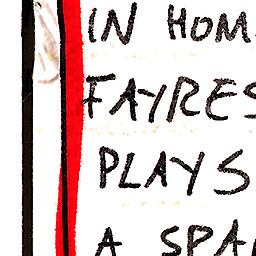 IN HOM
FAYRES
PLAYS
A SPA